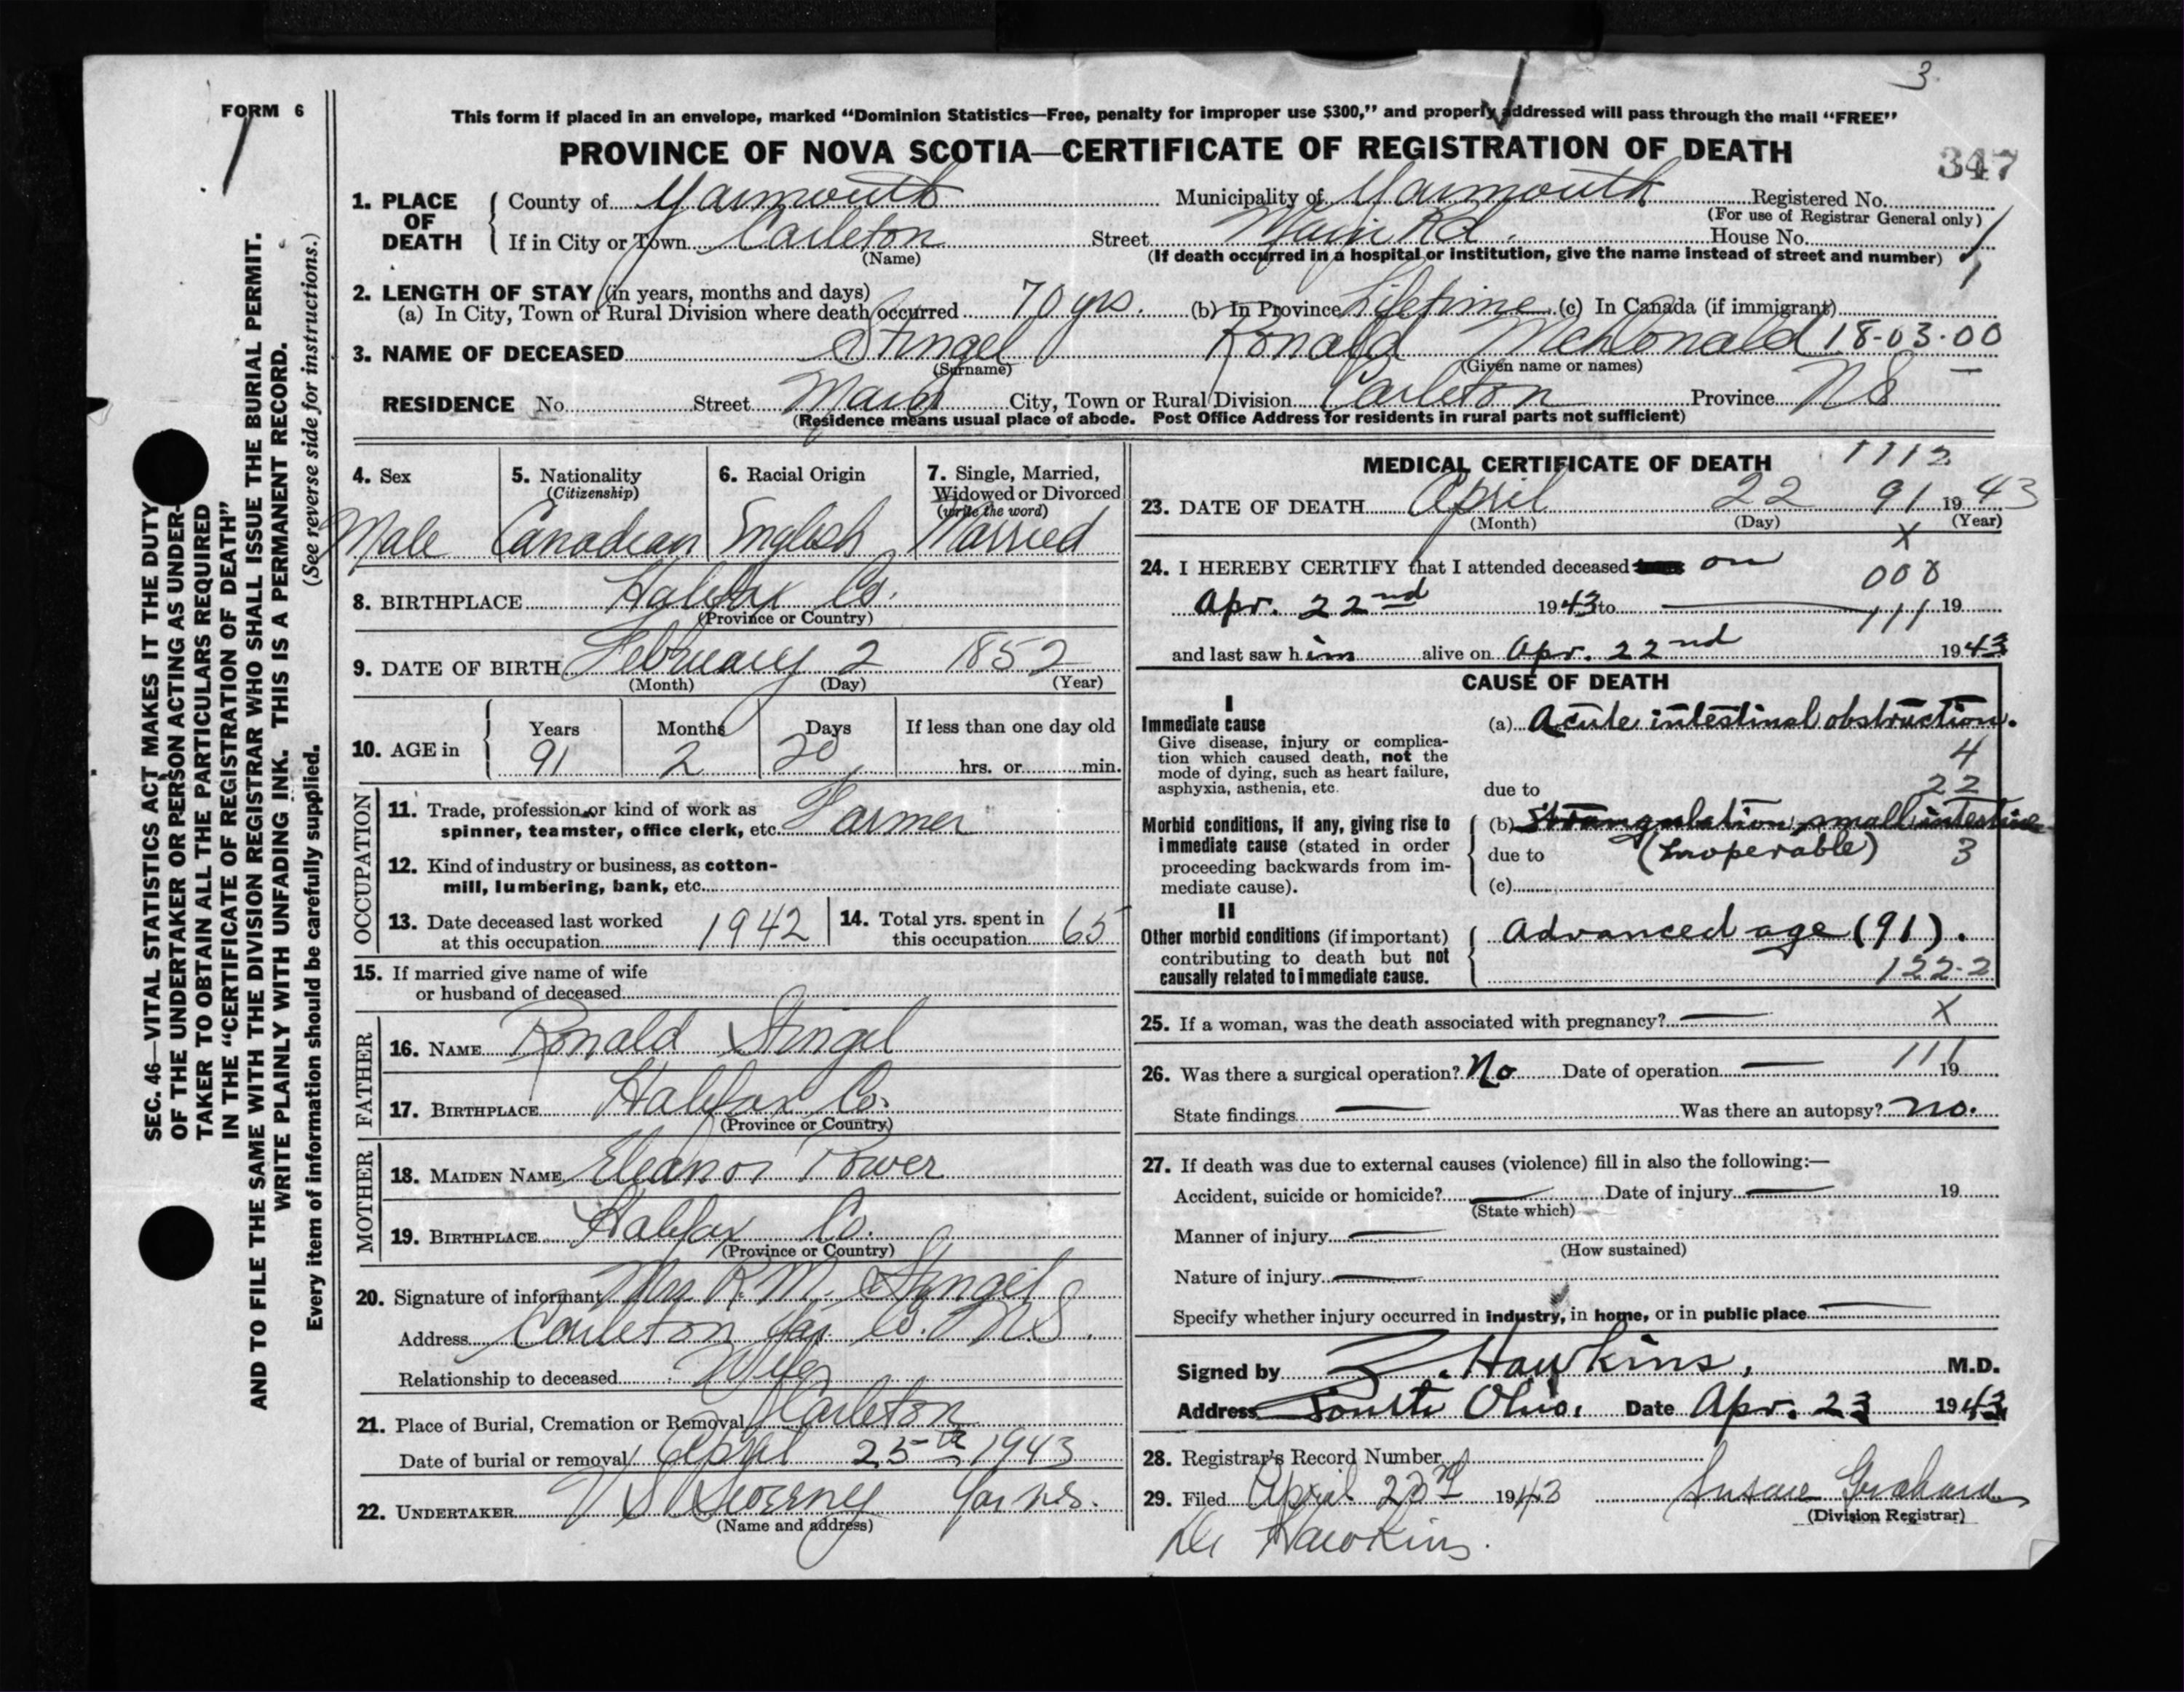 3
FORM 6
This form if placed in an envelope, marked “Dominion Statistics—Free, penalty for improper use $300,” and properly addressed will pass through the mail “FREE”
PROVINCE OF NOVA SCOTIA—CERTIFICATE OF REGISTRATION OF DEATH
347
1. PLACE OF DEATH
County of Yarmouth Municipality of Yarmouth Registered No.
(For use of Registrar General only)
If in City or Town Carleton Street Main Rd. House No.
(Name) (If death occurred in a hospital or institution, give the name instead of street and number)
2. LENGTH OF STAY (in years, months and days)
(a) In City, Town or Rural Division where death occurred 70 yrs. (b) In Province Lifetime (c) In Canada (if immigrant)
3. NAME OF DECEASED Stingel Ronald McDonald 18-03-00
(Surname) (Given name or names)
RESIDENCE No. Street Main City, Town or Rural Division Carleton Province NS
(Residence means usual place of abode. Post Office Address for residents in rural parts not sufficient)
4. Sex
Male
5. Nationality
(Citizenship)
Canadian
6. Racial Origin
English
7. Single, Married,
Widowed or Divorced
(write the word)
Married
8. BIRTHPLACE Halifax Co.
(Province or Country)
9. DATE OF BIRTH February 2 1852
(Month) (Day) (Year)
10. AGE in
Years Months Days If less than one day old
91 2 20 hrs. or min.
OCCUPATION
11. Trade, profession or kind of work as
spinner, teamster, office clerk, etc. Farmer
12. Kind of industry or business, as cotton-
mill, lumbering, bank, etc.
13. Date deceased last worked
at this occupation 1942
14. Total yrs. spent in
this occupation 65
15. If married give name of wife
or husband of deceased
FATHER
16. NAME Ronald Stingel
17. BIRTHPLACE Halifax Co.
(Province or Country)
MOTHER
18. MAIDEN NAME Eleanor Power
19. BIRTHPLACE Halifax Co.
(Province or Country)
20. Signature of informant Mrs R. M. Stingel
Address Carleton Yar. Co. NS.
Relationship to deceased Wife
21. Place of Burial, Cremation or Removal Carleton
Date of burial or removal April 25th 1943
22. UNDERTAKER V S Sweeney Yar NS.
(Name and address)
MEDICAL CERTIFICATE OF DEATH 1112
23. DATE OF DEATH April 22 91 1943
(Month) (Day) (Year)
X
24. I HEREBY CERTIFY that I attended deceased on
008
Apr. 22nd 1943 to 19
111
and last saw him alive on Apr. 22nd 1943
CAUSE OF DEATH
I
Immediate cause
Give disease, injury or complica-
tion which caused death, not the
mode of dying, such as heart failure,
asphyxia, asthenia, etc.
(a) Acute intestinal obstruction.
4
22
due to
Morbid conditions, if any, giving rise to
immediate cause (stated in order
proceeding backwards from im-
mediate cause).
(b) Strangulation, small intestine
due to (Inoperable) 3
(c)
II
Other morbid conditions (if important)
contributing to death but not
causally related to immediate cause.
Advanced age (91).
122-2
25. If a woman, was the death associated with pregnancy? X
26. Was there a surgical operation? No Date of operation 19
111
State findings Was there an autopsy? no.
27. If death was due to external causes (violence) fill in also the following:—
Accident, suicide or homicide? Date of injury 19
(State which)
Manner of injury
(How sustained)
Nature of injury
Specify whether injury occurred in industry, in home, or in public place
Signed by Z. Hawkins, M.D.
Address South Ohio. Date Apr. 23 1943
28. Registrar's Record Number
29. Filed April 23rd 1943
(Division Registrar)
Dr Hawkins.
SEC. 46—VITAL STATISTICS ACT MAKES IT THE DUTY
OF THE UNDERTAKER OR PERSON ACTING AS UNDER-
TAKER TO OBTAIN ALL THE PARTICULARS REQUIRED
IN THE “CERTIFICATE OF REGISTRATION OF DEATH”
AND TO FILE THE SAME WITH THE DIVISION REGISTRAR WHO SHALL ISSUE THE BURIAL PERMIT.
WRITE PLAINLY WITH UNFADING INK. THIS IS A PERMANENT RECORD.
Every item of information should be carefully supplied. (See reverse side for instructions.)